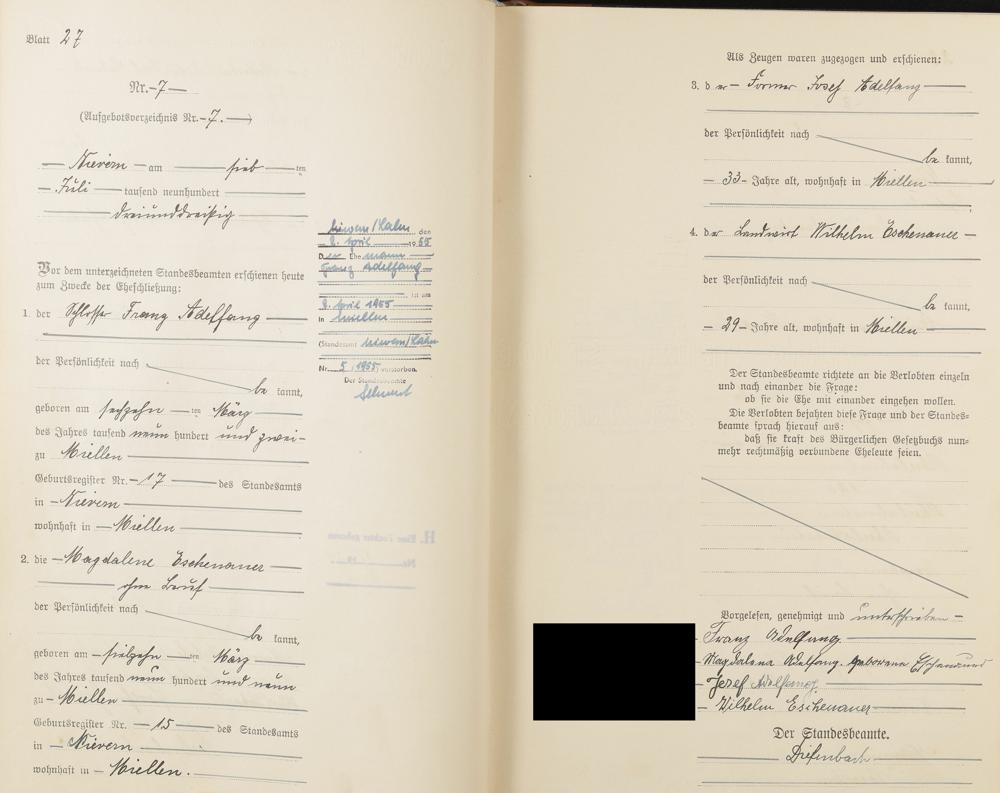 Blatt 27
Nr. 7
(Aufgebotsverzeichnis Nr. 7.)
Nievern am sieb ten
Juli tausend neunhundert
dreiunddreißig
Vor dem unterzeichneten Standesbeamten erschienen heute
zum Zwecke der Eheschließung:
1. der Schlosser Franz Adelfang
der Persönlichkeit nach
be kannt,
geboren am sechzehn ten März
des Jahres tausend neun hundert und zwei
zu Miellen
Geburtsregister Nr. 17 des Standesamts
in Nievern
wohnhaft in Miellen
2. die Magdalene Eschenauer
ohne Beruf
der Persönlichkeit nach
be kannt,
geboren am siebzehn ten März
des Jahres tausend neun hundert und neun
zu Miellen
Geburtsregister Nr. 15 des Standesamts
in Nievern
wohnhaft in Miellen.
Nievern/Lahn, den
8. April 1955
Der Ehemann
Franz Adelfang
ist am
8. April 1955
in Miellen
(Standesamt Nievern/Lahn
Nr. 5/1955) verstorben.
Der Standesbeamte
Als Zeugen waren zugezogen und erschienen:
3. der Former Josef Adelfang
der Persönlichkeit nach
be kannt,
33 Jahre alt, wohnhaft in Miellen
4. der Landwirt Wilhelm Eschenauer
der Persönlichkeit nach
be kannt,
29 Jahre alt, wohnhaft in Miellen
Der Standesbeamte richtete an die Verlobten einzeln
und nach einander die Frage:
ob sie die Ehe mit einander eingehen wollen.
Die Verlobten bejahten diese Frage und der Standes-
beamte sprach hierauf aus:
daß sie kraft des Bürgerlichen Gesetzbuchs nun-
mehr rechtmäßig verbundene Eheleute seien.
Vorgelesen, genehmigt und unterschrieben
Franz Adelfang
Magdalena Adelfang. geborene Eschenauer
Josef Adelfang
Wilhelm Eschenauer
Der Standesbeamte.
Diefenbach